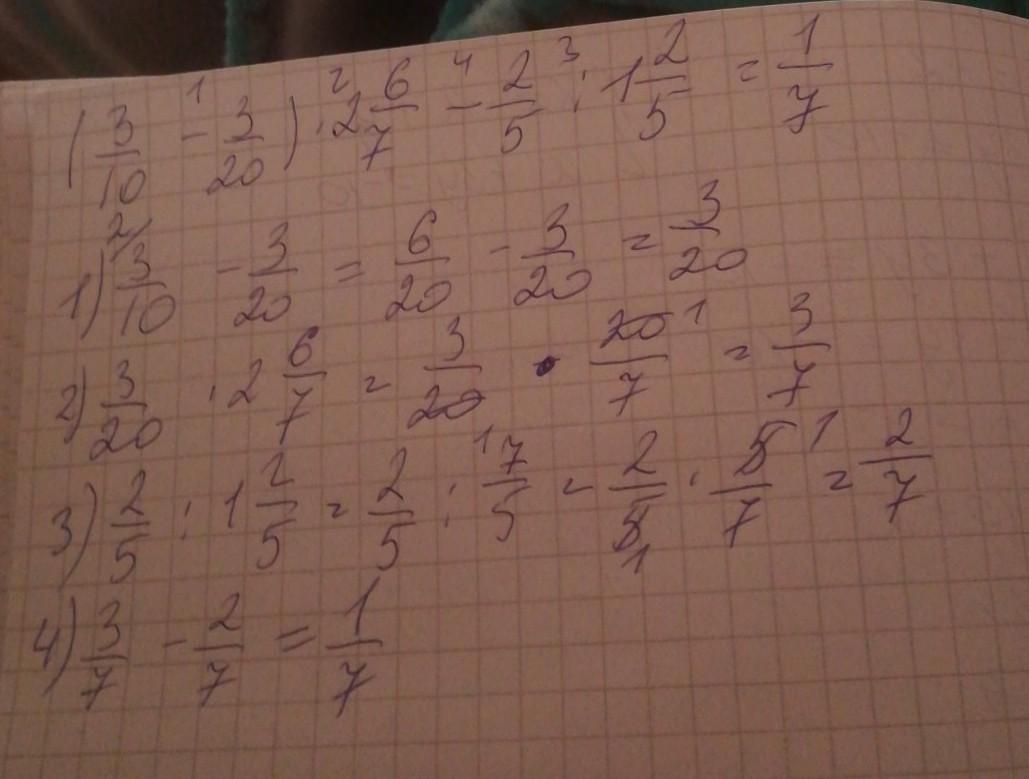 (3/10 ¹− 3/20) ²· 2 6/7 ⁴− 2/5 ³: 1 2/5 = 1/7
1) ²⁄3/10 − 3/20 = 6/20 − 3/20 = 3/20
2) 3/20 · 2 6/7 = 3/20 · 20/7 ¹ = 3/7
3) 2/5 : 1 2/5 = 2/5 : 7/5 = 2/5 · 5/7 = 2/7
4) 3/7 − 2/7 = 1/7